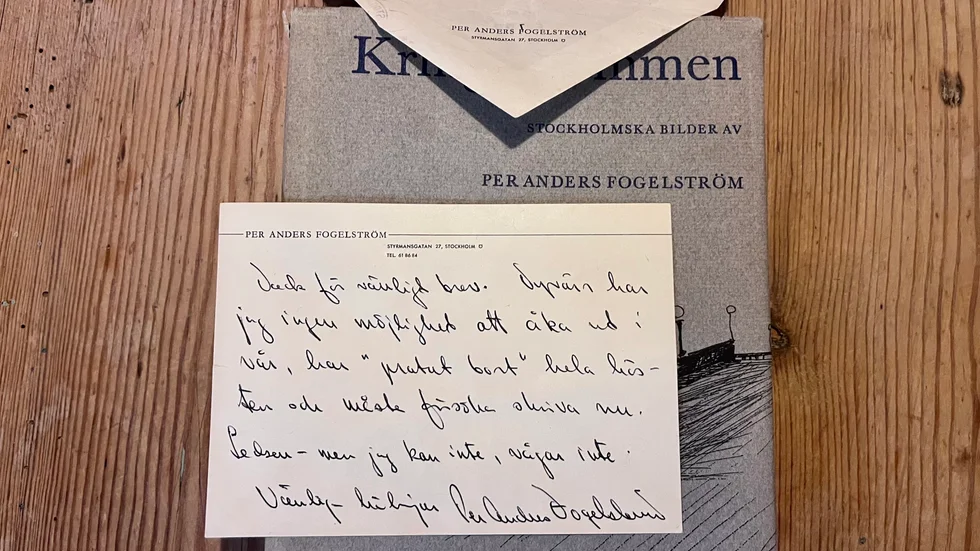 PER ANDERS FOGELSTRÖM
STYRMANSGATAN 27, STOCKHOLM Ö
Kring ... mmen
STOCKHOLMSKA BILDER AV
PER ANDERS FOGELSTRÖM
PER ANDERS FOGELSTRÖM
STYRMANSGATAN 27, STOCKHOLM Ö
TEL. 61 86 84
Tack för vänligt brev. Tyvärr har
jag ingen möjlighet att åka ut i
vår, har "pratat bort" hela hös-
ten och måste försöka skriva nu.
Ledsen – men jag kan inte, vågar inte.
Vänliga hälsningar Per Anders Fogelström